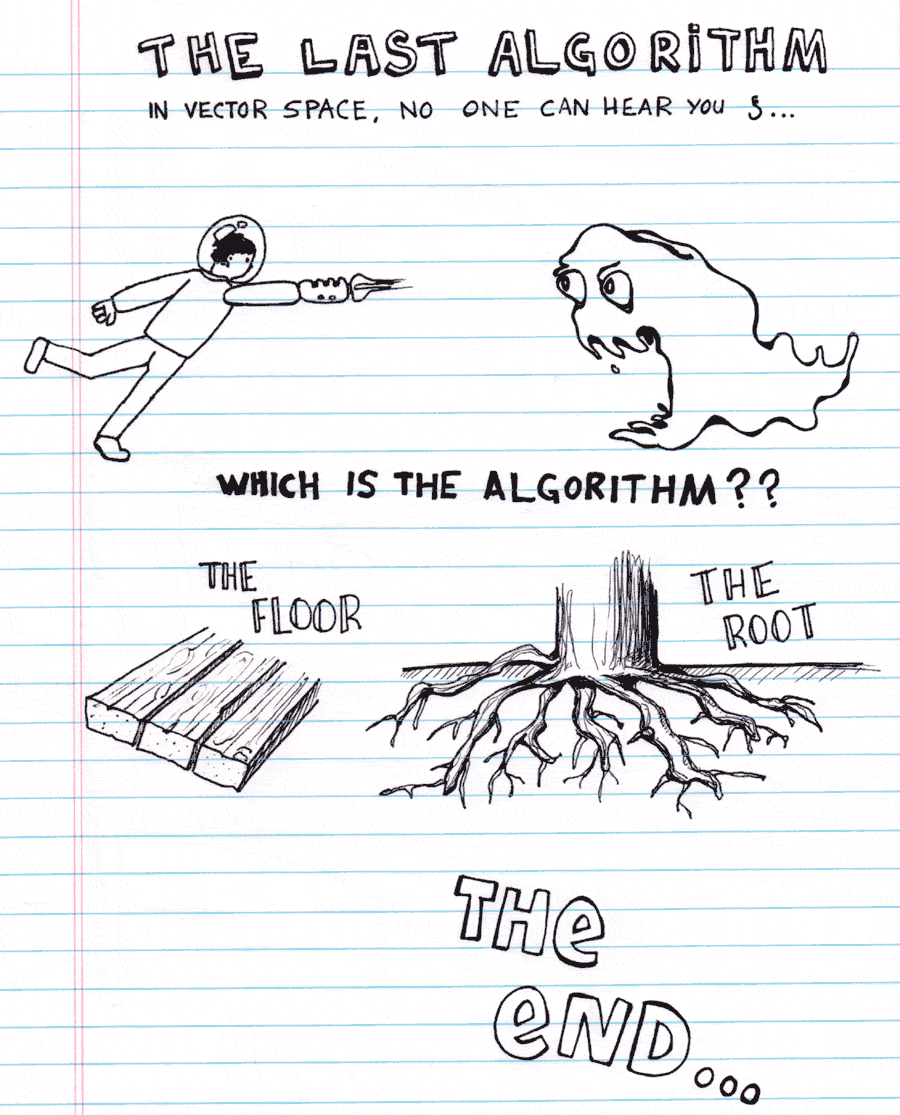 THE LAST ALGORiTHM
IN VECTOR SPACE, NO ONE CAN HEAR YOU §...
WHICH IS THE ALGORITHM??
THE
FLOOR
THE
ROOT
THe
eND...